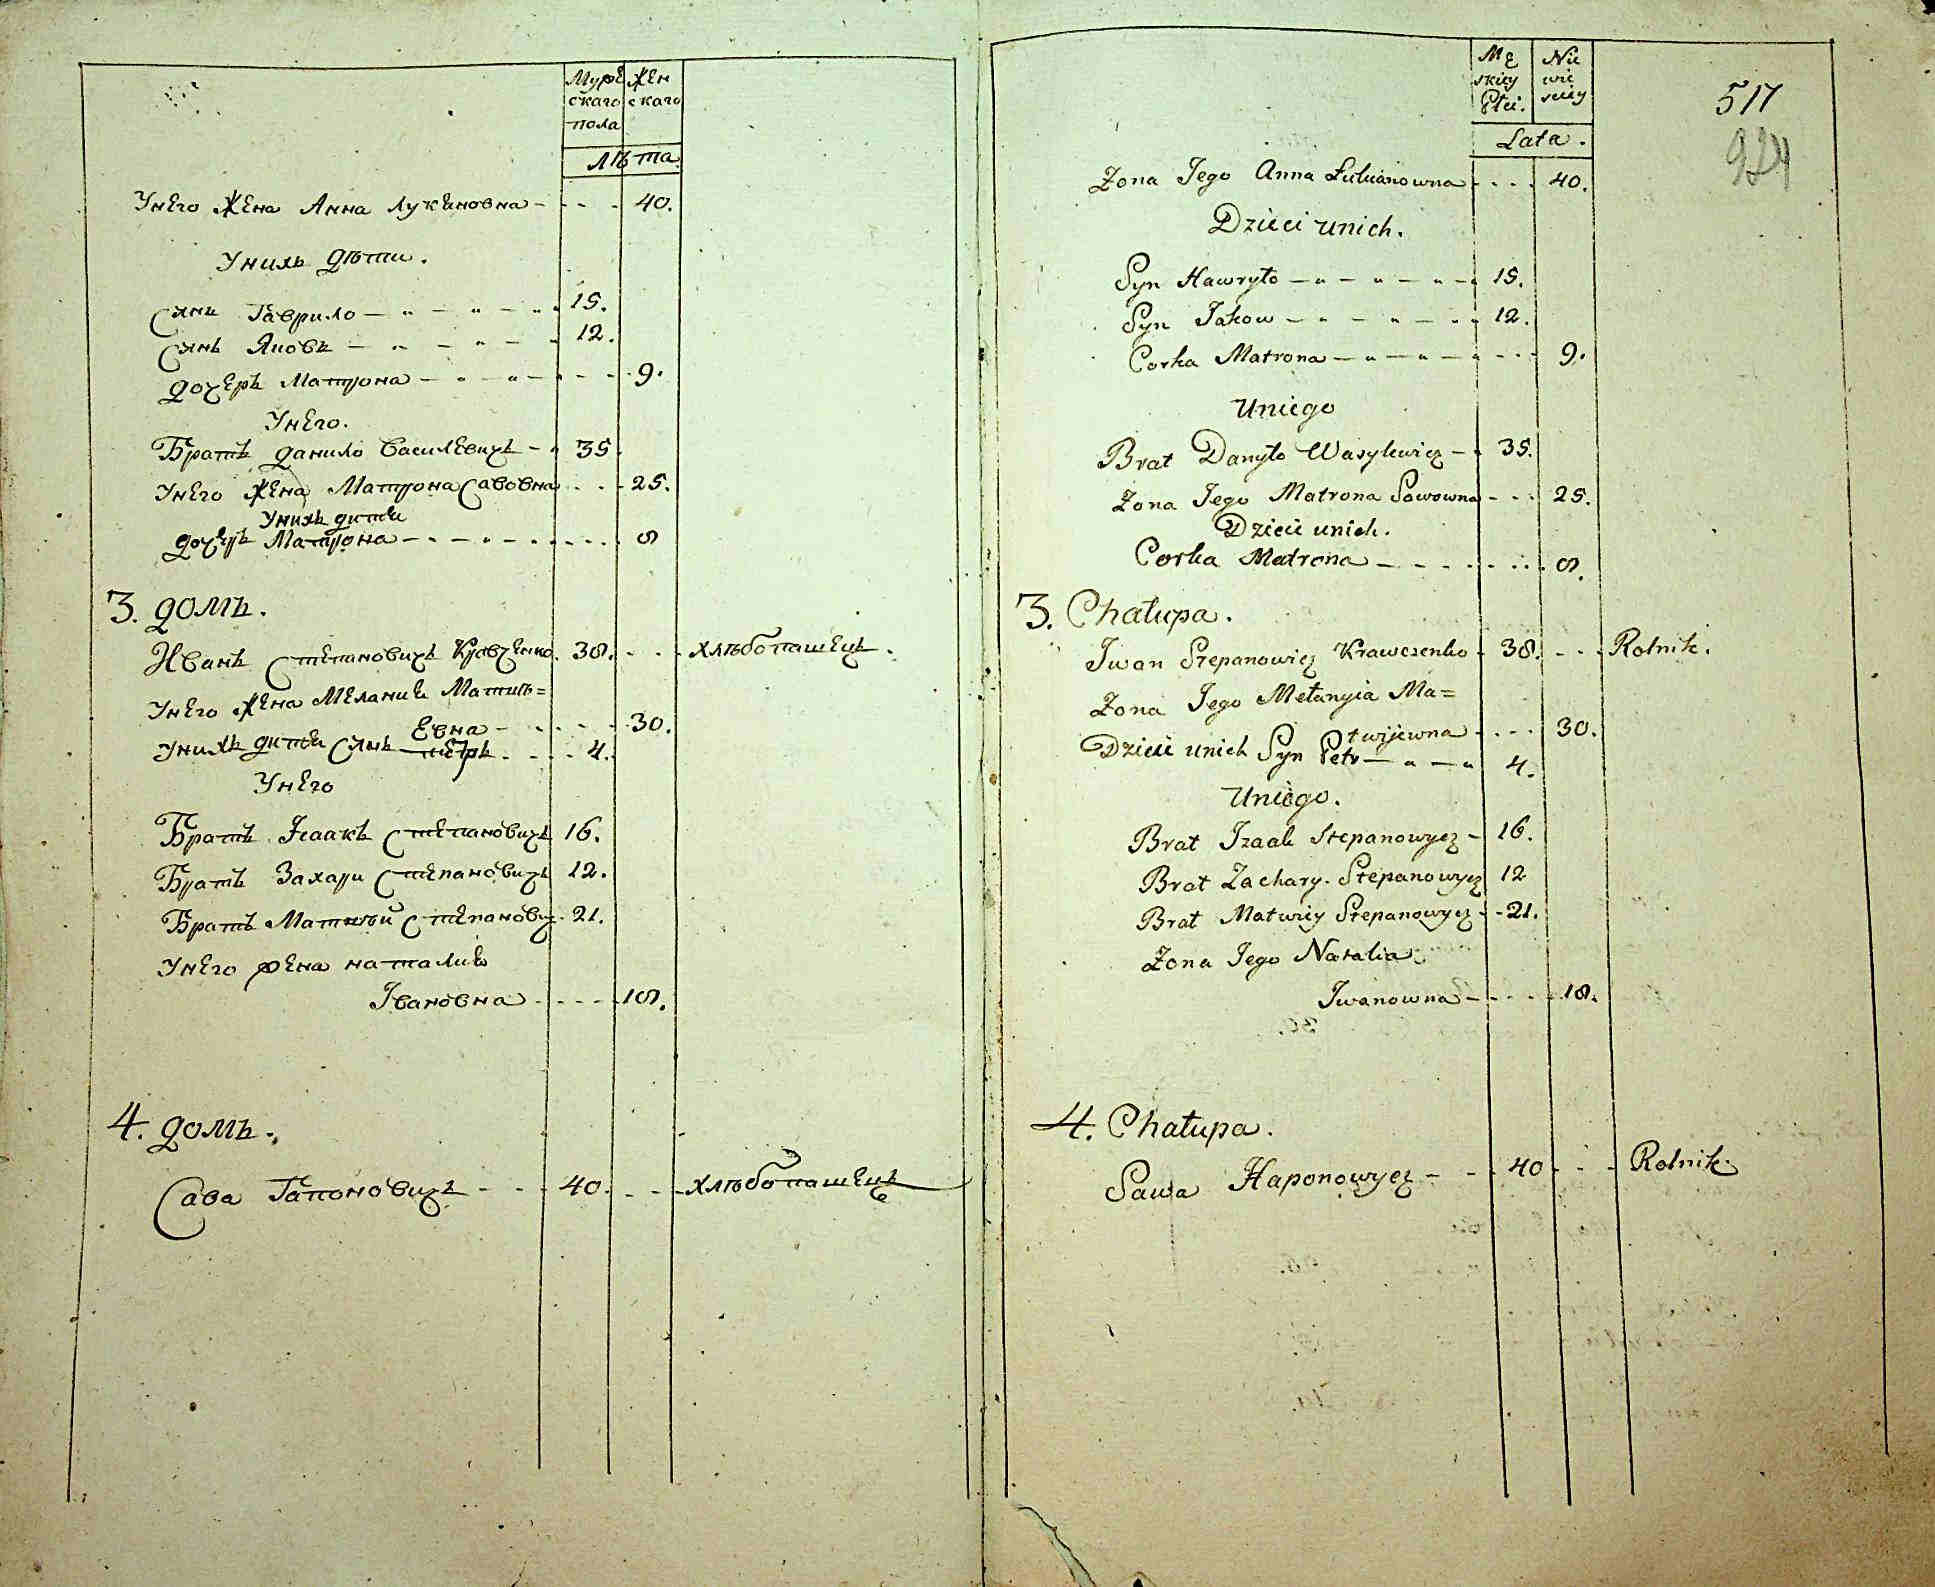 Мужескаго пола
Женскаго
Лѣта
Унего Жена Анна Лукяновна - - - 40.
Унихъ дѣти.
Сынъ Гаврило 15.
Сынъ Яковъ 12.
дочеръ Матрона 9.
Унего.
Братъ данило Василевичъ 35
Унего Жена Матрона Савовна 25.
Унихъ дити
дочеръ Матрона 8
3. домъ.
Иванъ Степановичъ Кравченко. 38. хлѣбопашецъ.
Унего Жена Мелания Матвѣ=
Евна 30.
Унихъ дити Сынъ петръ 4.
Унего
Братъ Исаакъ Степановичъ 16.
Братъ Захари Степановичъ 12.
Братъ Матвѣй Степанович 21.
Унего жена наталия
Ивановна 18.
4. домъ.
Сава Гапоновичъ 40. хлѣбопашецъ
Męskiey Płci.
Niewieściey
Lata.
517
924
Żona Jego Anna Łukianowna 40.
Dzieci unich.
Syn Hawryło 15.
Syn Jakow 12.
Corka Matrona 9.
Uniego
Brat Danyło Wasylewicz 35.
Żona Jego Matrona Sawowna 25.
Dzieci unich.
Corka Matrona 8.
3. Chałupa.
Iwan Stepanowicz Krawczenko 38. Rolnik.
Żona Jego Mełanyia Ma=
twijewna 30.
Dzieci unich Syn Petr 4.
Uniego.
Brat Izaak Stepanowycz 16.
Brat Zachary. Stepanowycz 12
Brat Matwiey Stepanowycz 21.
Żona Jego Natalia
Iwanowna 18.
4. Chałupa.
Sawa Haponowycz 40 Rolnik.